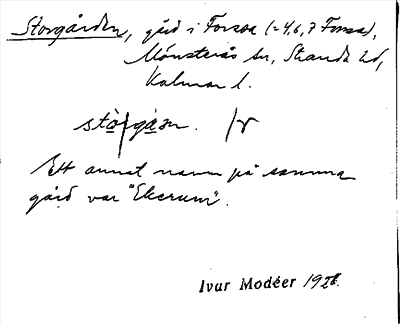 Storgården, gård i Forsa (=4,6,7 Forsa),
Mönsterås sn, Stranda hd,
Kalmar l.
Ett annat namn på samma
gård var "Ekerum".
Ivar Modéer 192